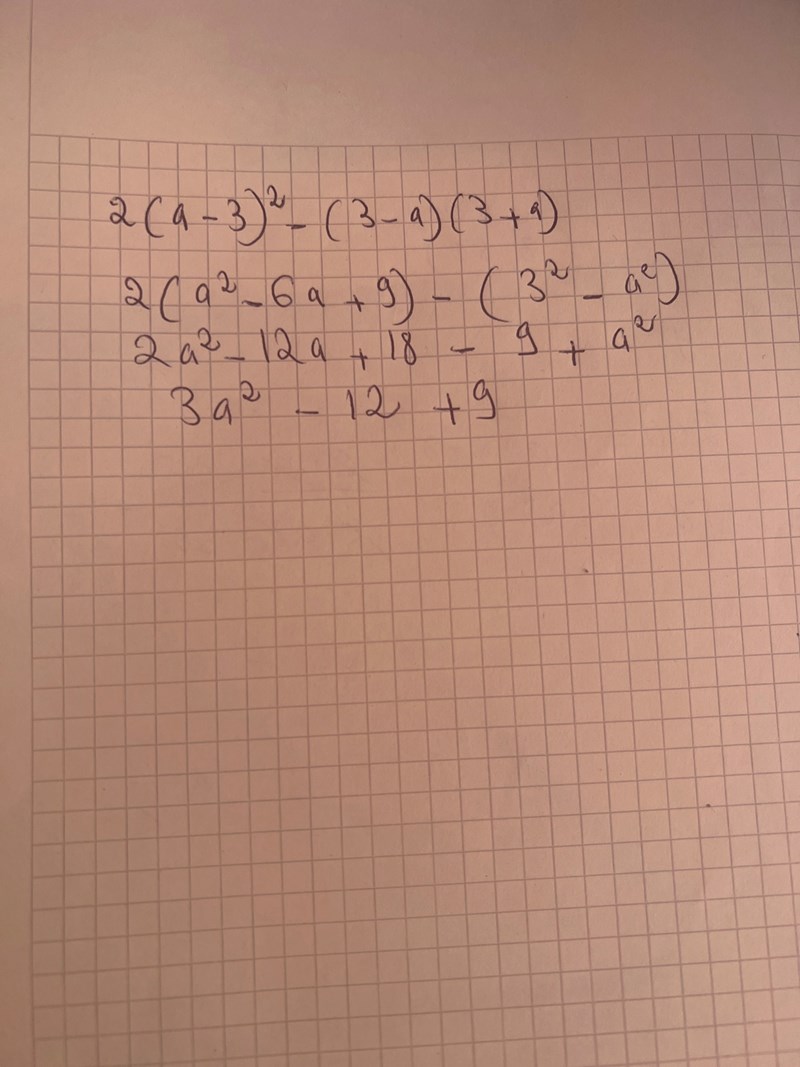 2(a-3)² - (3-a)(3+a)
2(a² - 6a + 9) - (3² - a²)
2a² - 12a + 18 - 9 + a²
3a² - 12 + 9